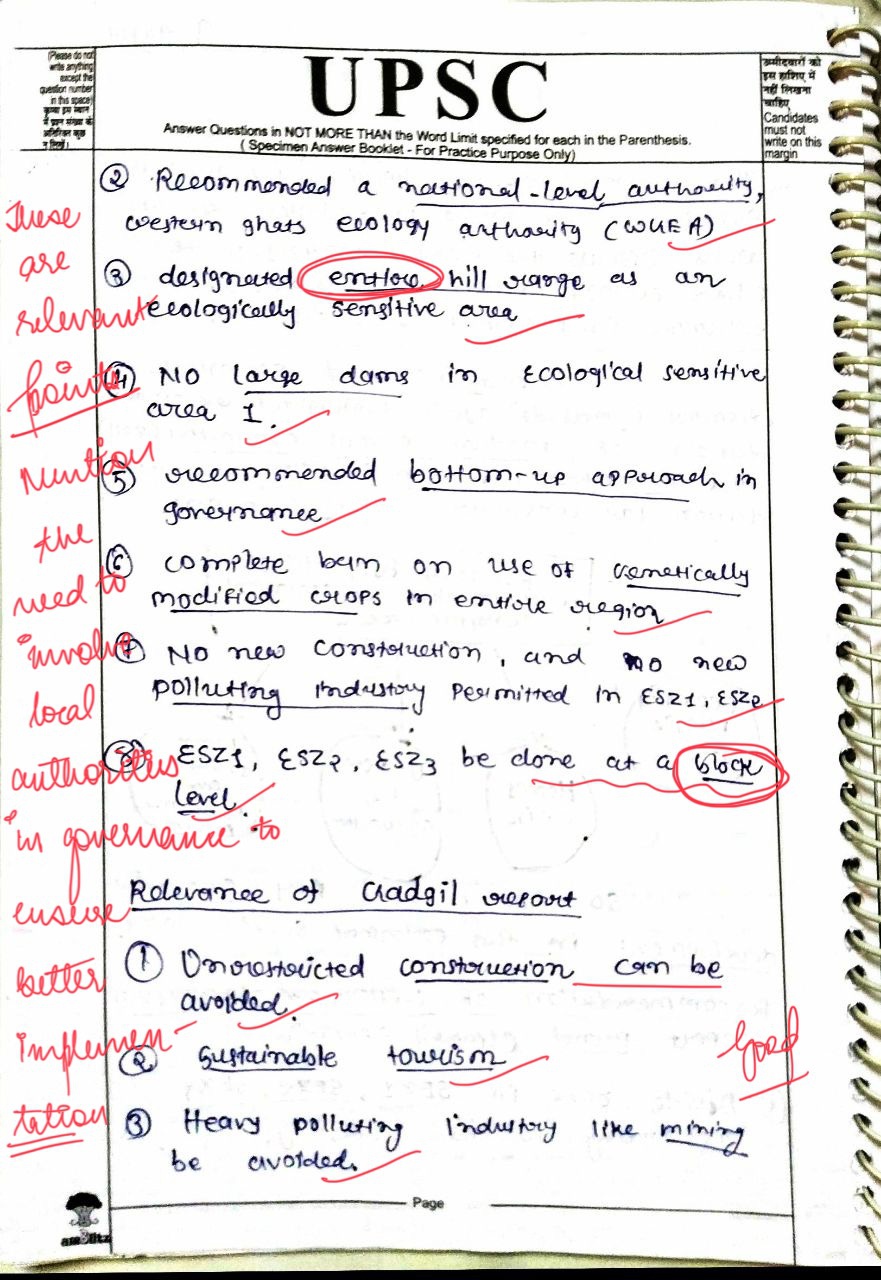 (Please do not
write anything
except the
question number
in this space)
UPSC
Answer Questions in NOT MORE THAN the Word Limit specified for each in the Parenthesis.
( Specimen Answer Booklet - For Practice Purpose Only)
उम्मीदवारों को
इस हाशिए में
नहीं लिखना
चाहिए
Candidates
must not
write on this
margin
② Recommended a national-level authority,
western ghats ecology authority (WGEA)
③ designated entire hill range as an
ecologically sensitive area
④ NO large dams in Ecological sensitive
area 1.
⑤ recommended bottom-up approach in
governance
⑥ complete ban on use of Genetically
modified crops in entire region
⑦ NO new construction, and no new
polluting industry permitted in ESZ1, ESZ2
⑧ ESZ1, ESZ2, ESZ3 be done at a block
level.
These
are
relevant
points
Mention
the
need to
involve
local
authorities
in governance to
ensure
better
implemen-
tation
Relevance of Gadgil report
① Unrestricted construction can be
avoided.
② Sustainable tourism
③ Heavy polluting industry like mining
be avoided.
Good
Page